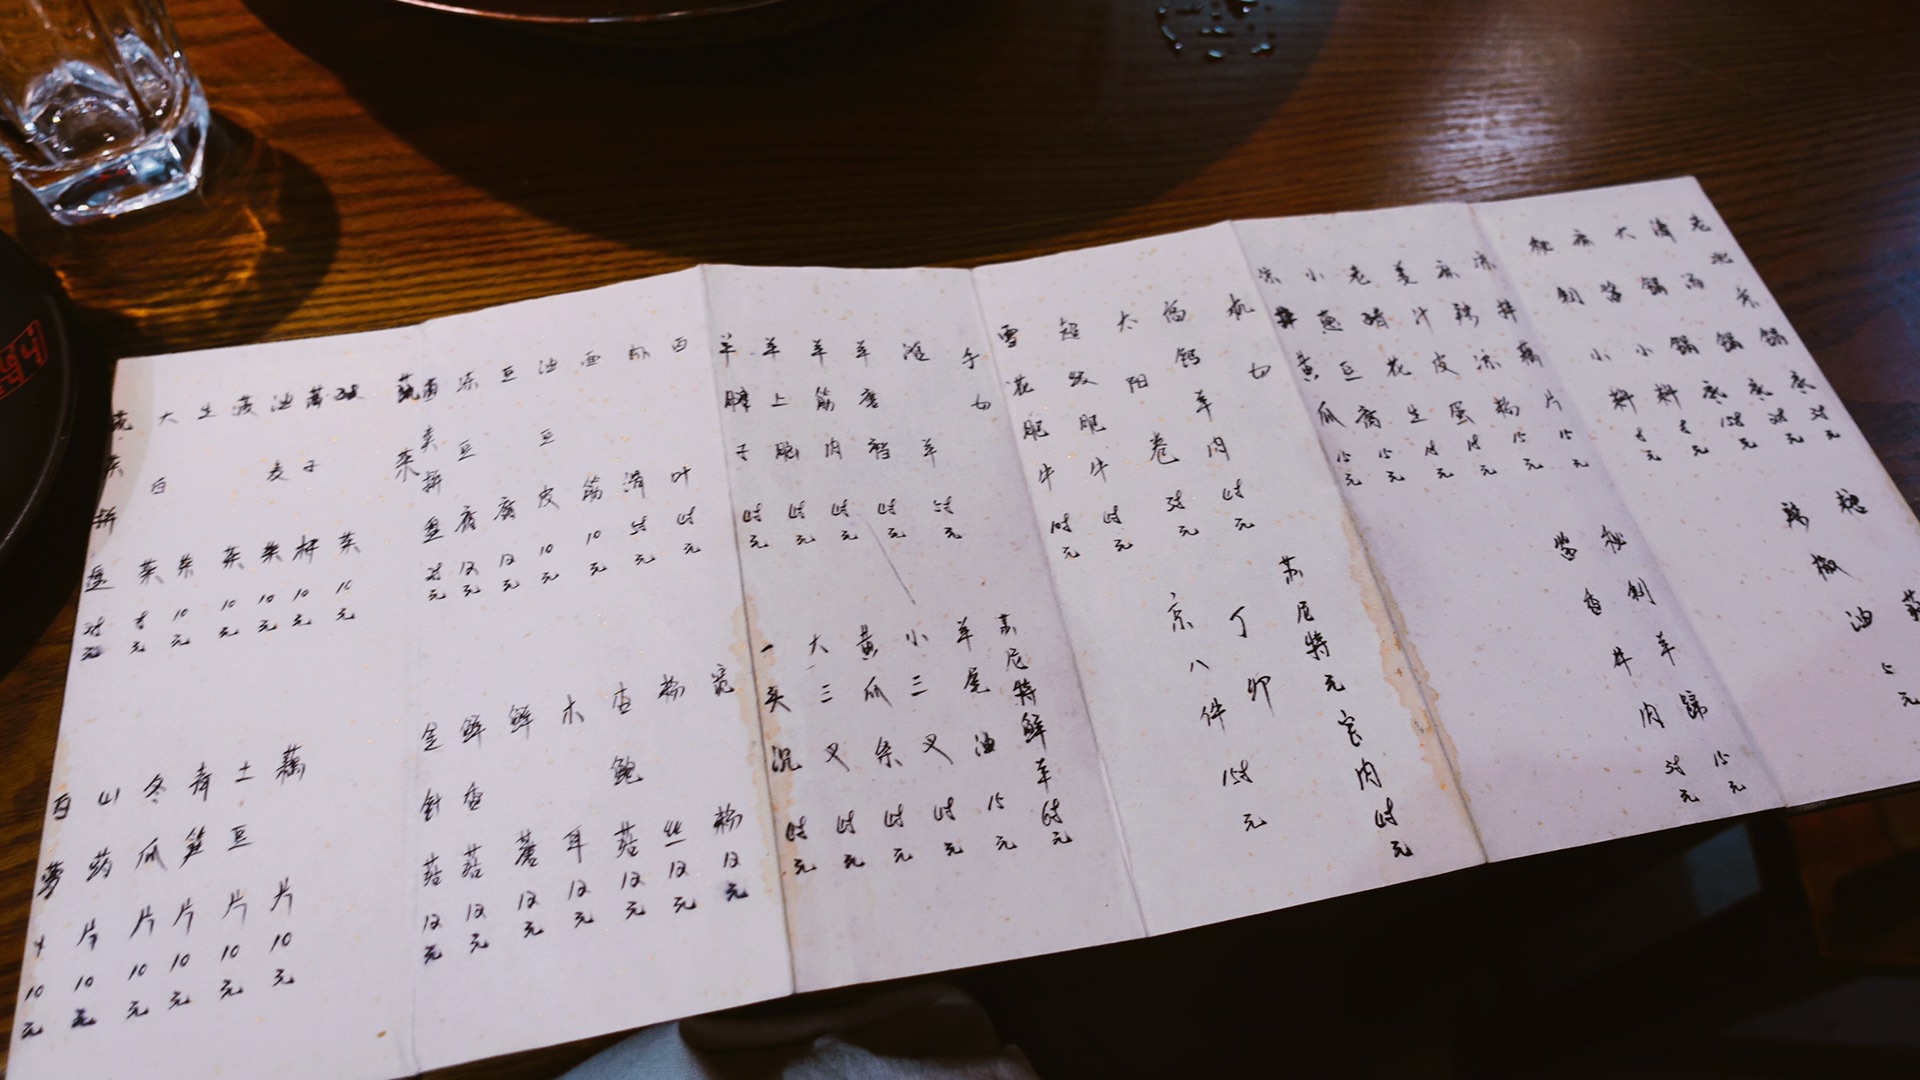 老北京锅底38元
锅底38元
大锅锅底158元
麻酱小料8元
秘制小料8元
糖蒜
辣椒油5元
凉拌藕片15元
麻辣凉粉15元
姜汁皮蛋18元
老醋花生18元
小葱豆腐15元
凉拌黄瓜15元
秘制羊蹄15元
酱香牛肉38元
羊肉48元
太阳卷38元
超级肥牛48元
雪花肥牛108元
苏尼特元宝肉48元
丁卯
京八件158元
手切
羊58元
羊磨裆48元
羊筋肉48元
羊上脑48元
羊腱子48元
苏尼特鲜羊68元
羊尾油15元
小三叉48元
黄瓜条48元
大三叉48元
一头沉48元
百叶48元
虾滑58元
面筋10元
油豆皮10元
豆腐12元
冻豆腐12元
菌类拼盘28元
宽粉12元
粉丝12元
杏鲍菇12元
木耳12元
鲜蘑12元
鲜香菇12元
金针菇12元
蔬菜
菜10元
杆10元
油麦菜10元
菜10元
生菜10元
大白菜8元
蔬菜拼盘28元
藕片10元
土豆片10元
青笋片10元
冬瓜片10元
山药片10元
白萝卜10元